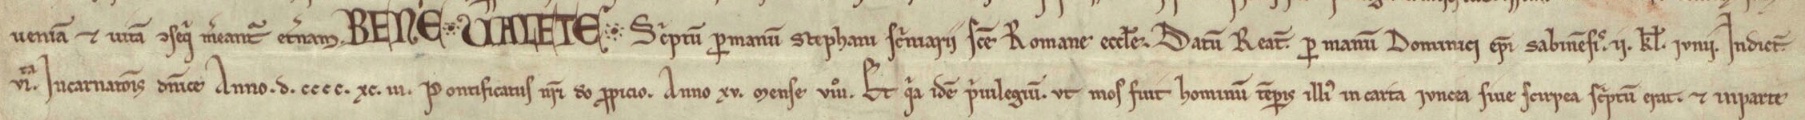 ueniā ⁊ uitā ꝯseq̄ m̄eant᷑ et̄nam. BENE VALETE Sc̄ptū ꝑ manū stephani sc̄niarii sc̄e Romane eccl̄e. Datū Reat̄. ꝑ manū Dominici ep̄i sabinensis. ii. kl̄. iunii. Indict̄.
vi.ͣ Incarnatōis dn̄ice Anno. d. cccc. xc. iii. Pontificatus nr̄i do ꝓpicio. Anno xv. mense viii. Et q̄a idē p̄uilegiū. ut mos fuit hominū tēꝑis illi᷒ in carta iuncea siue scirpea sc̄ptū erat. ⁊ in parte